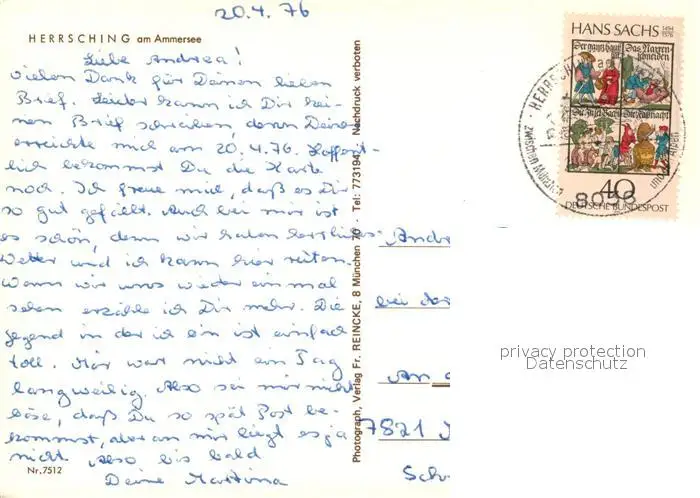 20.4.76
HERRSCHING am Ammersee
Liebe Andrea!
Vielen Dank für Deinen lieben
Brief. Leider kann ich Dir kei-
nen Brief schreiben, denn Deiner
erreichte mich am 20.4.76. Hoffent-
lich bekommst Du die Karte
noch. Ich freue mich, daß es Dir
so gut gefällt. Auch bei mir ist
es schön, denn wir haben herrliches
Wetter und ich kann hier reiten.
Wenn wir uns wieder einmal
sehen erzähle ich Dir mehr. Die
Gegend in der ich bin ist einfach
toll. Mir war nicht ein Tag
langweilig. Also sei mir nicht
böse, daß Du so spät Post be-
kommst, aber an mir liegt es ja
nicht. Also bis bald
Deine Martina
Nr. 7512
Photograph, Verlag Fr. REINCKE, 8 München 70 · Tel: 773194 Nachdruck verboten
HANS SACHS 1494 1576
Der gantz haus
Das Narren schneiden
Die Insel Bachi
Die Fasnacht
40
DEUTSCHE BUNDESPOST
HERRSCHI
zwischen München
und Alpen
8036
Andre
bei der
An
7821
Sch
privacy protection
Datenschutz